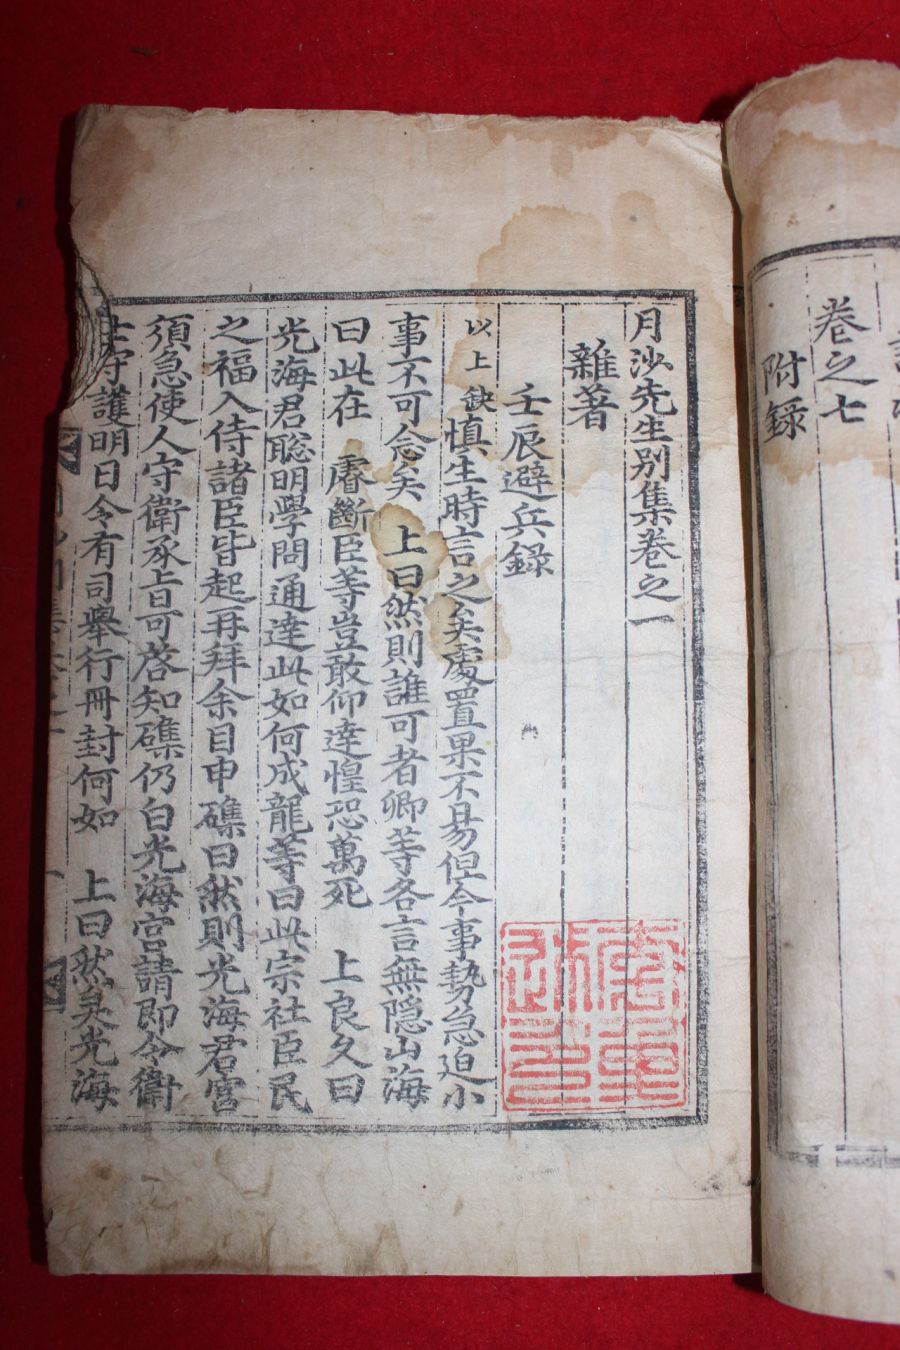 卷之七
附錄
月沙先生別集卷之一
雜著
壬辰避兵錄
以上缺愼生時言之矣處置果不易但今事勢急迫小
事不可念矣 上曰然則誰可者卿等各言無隱山海
曰此在 睿斷臣等豈敢仰達惶恐萬死 上良久曰
光海君聡明學問通達此如何成龍等曰此宗社臣民
之福入侍諸臣皆起再拜余目申磼曰然則光海君宮
須急使人守衛承旨可啓知磼仍白光海宮請即令衛
士守護明日令有司擧行冊封何如 上曰然昊光海